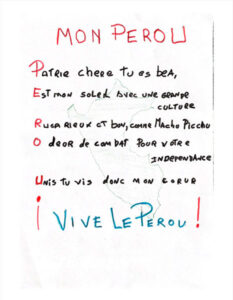 MON PEROU
PATRIE CHERE TU ES BEA,
EST MON SOLEIL AVEC UNE GRANDE
CULTURE
RUGARIEUX ET BON, COMME MACHU PICCHU
ODEOR DE COMBAT POUR VOTRE
INDEPENDANCE
UNIS TU VIS DONC MON COEUR
¡ VIVE LE PEROU !